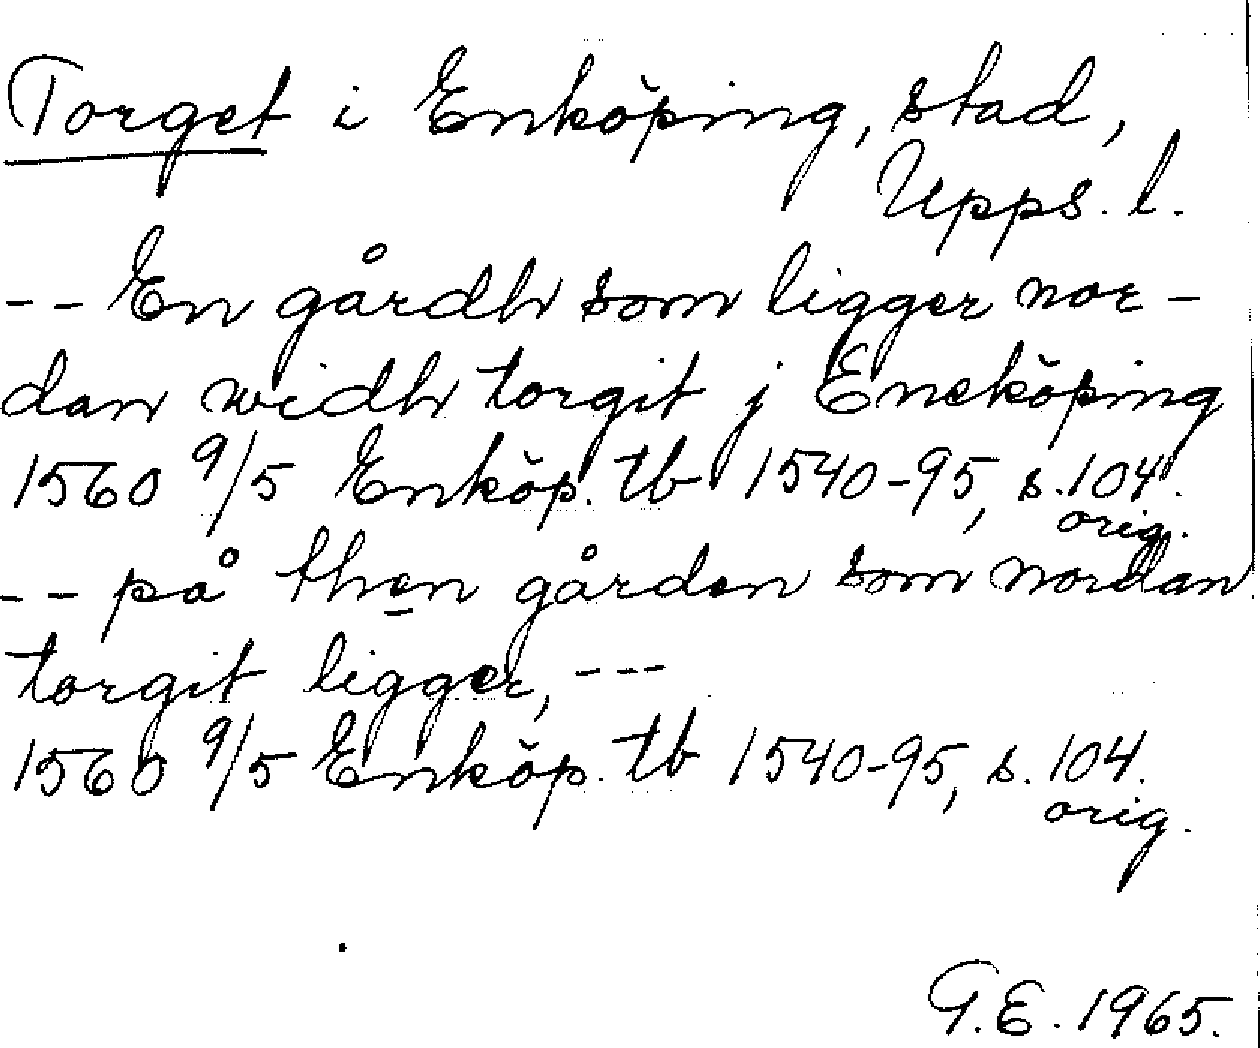 Torget i Enköping, stad,
Upps. l.
-- En gårdh som ligger nor-
dan widh torgit j Eneköping
1560 9/5 Enköp. tb 1540-95, s. 104.
orig.
-- på then gården som nordan
torgit ligger, ---
1560 9/5 Enköp. tb 1540-95, s. 104.
orig.
G.E. 1965.